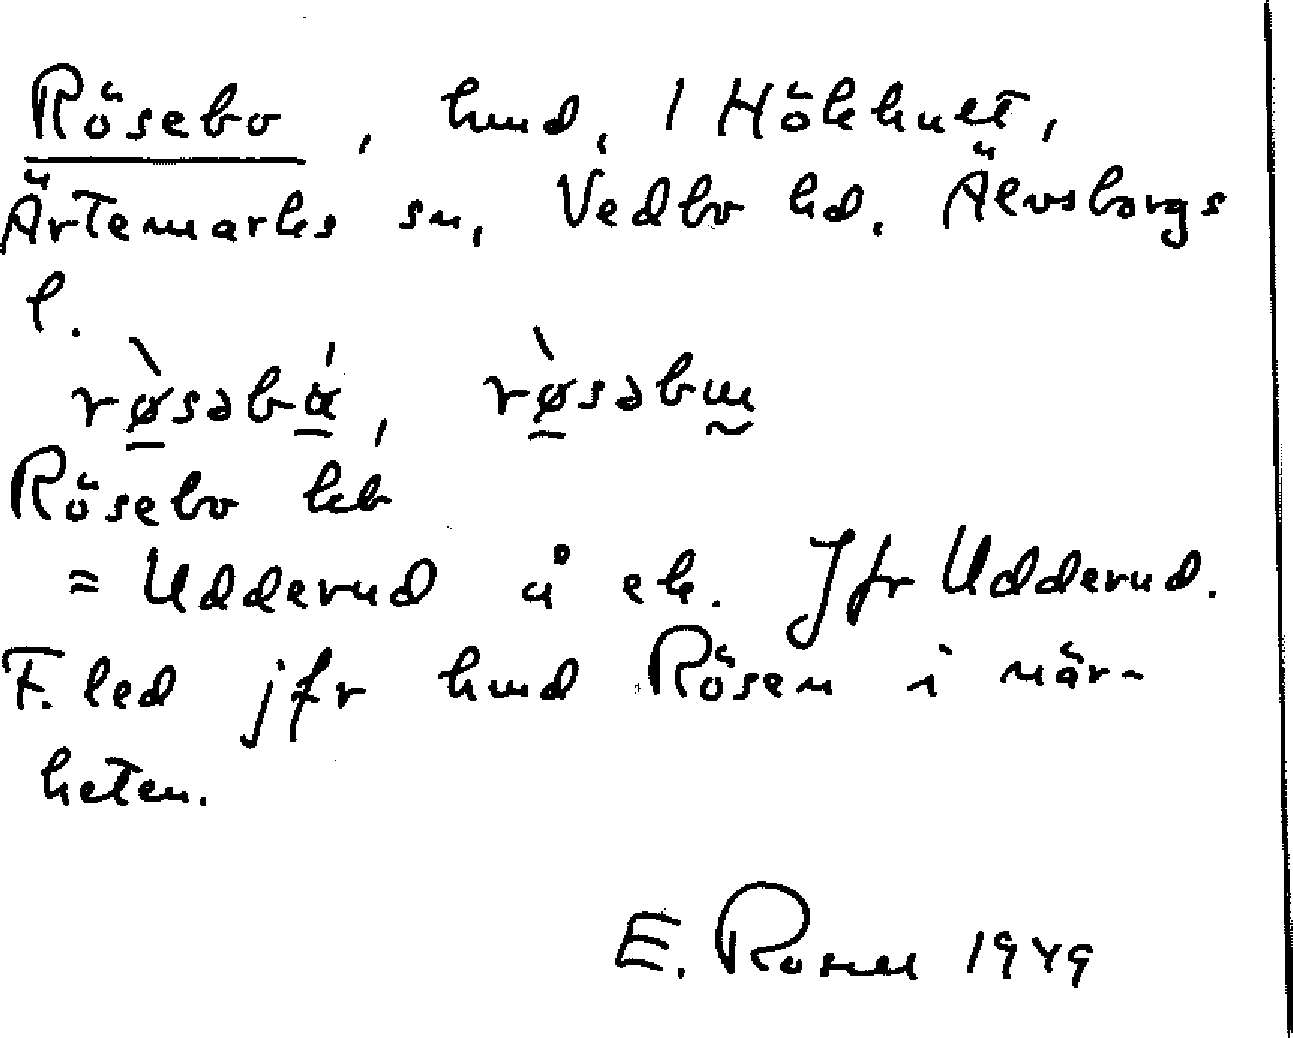 Rösebo, hmd, 1 Hökhult,
Ärtemarks sn, Vedbo hd. Älvsborgs
l.
rø̀səbá, rø̀səbɯ
Rösebo kb
= Udderud å ek. Jfr Udderud.
F. led jfr hmd Rösen i när-
heten.
E. Rosell 1949